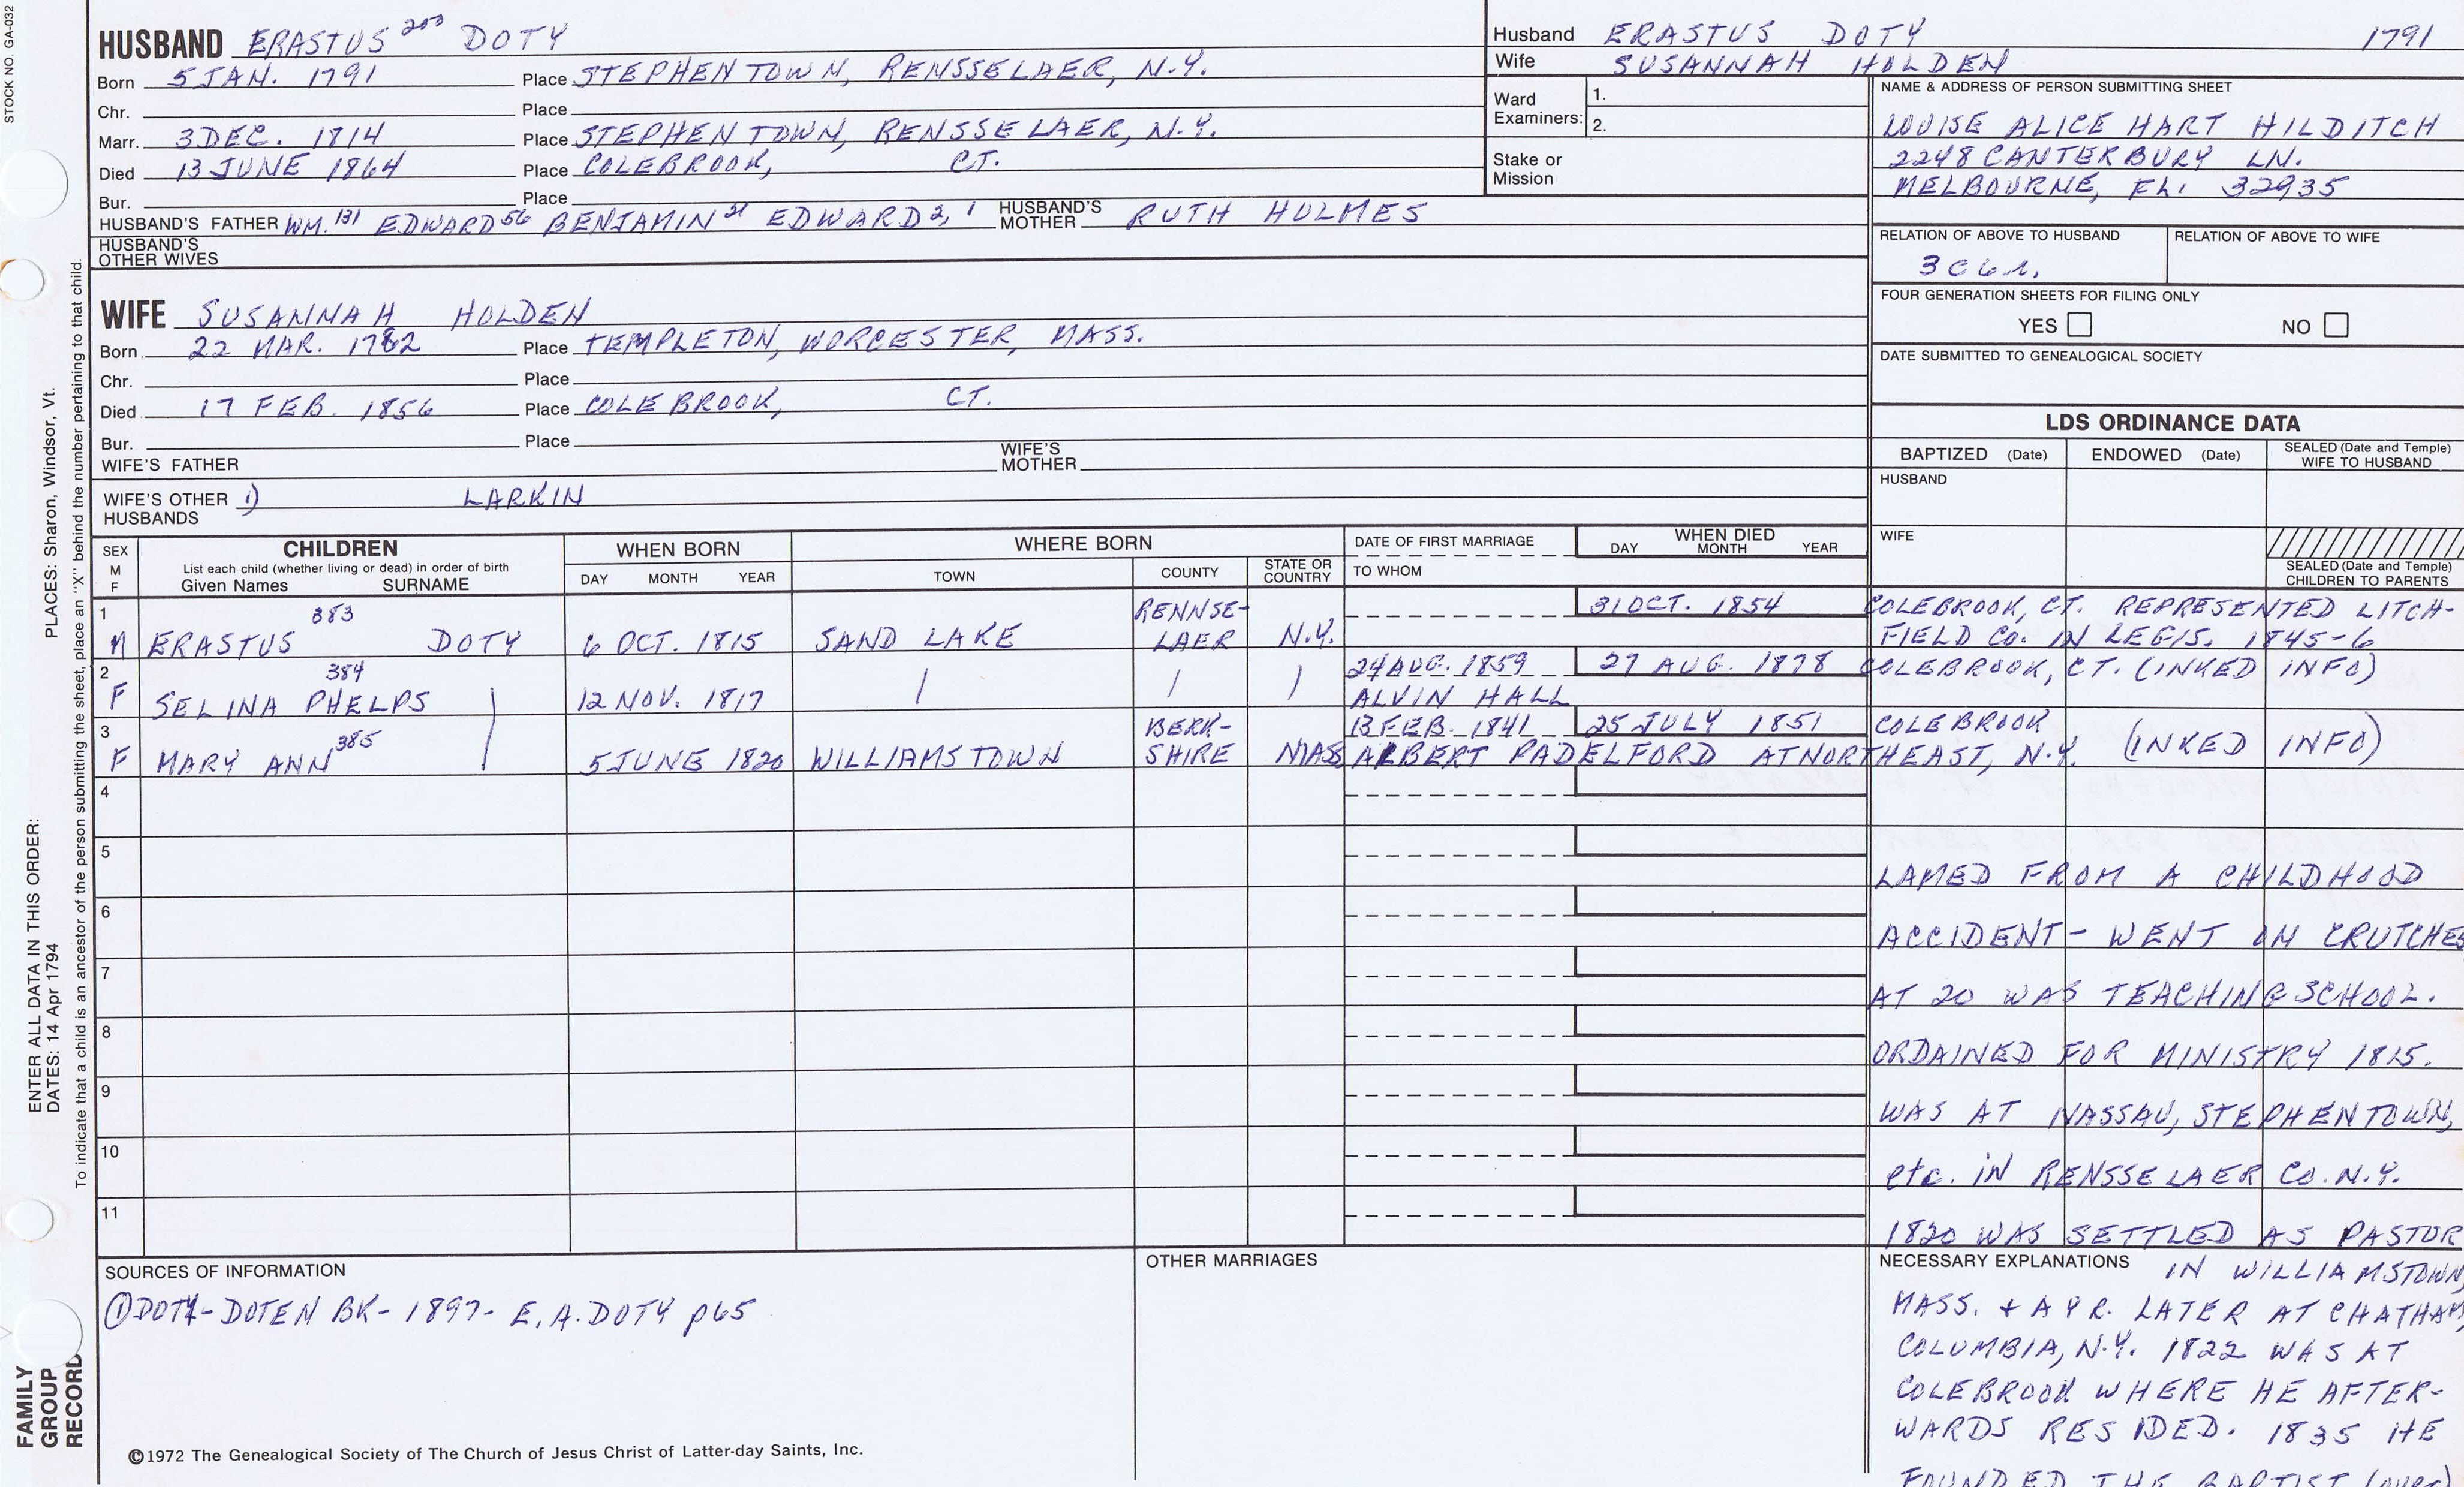 STOCK NO. GA-032
HUSBAND ERASTUS 203 DOTY
Born 5 JAN. 1791 Place STEPHENTOWN, RENSSELAER, N.Y.
Chr. Place
Marr. 3 DEC. 1814 Place STEPHENTOWN, RENSSELAER, N.Y.
Died 13 JUNE 1864 Place COLEBROOK, CT.
Bur. Place
HUSBAND'S FATHER WM. 131 EDWARD 56 BENJAMIN 21 EDWARD 2, 1 HUSBAND'S MOTHER RUTH HOLMES
HUSBAND'S OTHER WIVES
Husband ERASTUS DOTY 1791
Wife SUSANNAH HOLDEN
Ward Examiners: 1.
2.
Stake or Mission
NAME & ADDRESS OF PERSON SUBMITTING SHEET
LOUISE ALICE HART HILDITCH
2248 CANTERBURY LN.
MELBOURNE, FL. 32935
RELATION OF ABOVE TO HUSBAND RELATION OF ABOVE TO WIFE
3C6r.
FOUR GENERATION SHEETS FOR FILING ONLY
YES NO
DATE SUBMITTED TO GENEALOGICAL SOCIETY
WIFE SUSANNAH HOLDEN
Born 22 MAR. 1782 Place TEMPLETON, WORCESTER, MASS.
Chr. Place
Died 17 FEB. 1856 Place COLEBROOK, CT.
Bur. Place
WIFE'S FATHER WIFE'S MOTHER
WIFE'S OTHER HUSBANDS 1) LARKIN
LDS ORDINANCE DATA
BAPTIZED (Date) ENDOWED (Date) SEALED (Date and Temple) WIFE TO HUSBAND
HUSBAND
WIFE
SEALED (Date and Temple) CHILDREN TO PARENTS
SEX M F CHILDREN WHEN BORN WHERE BORN DATE OF FIRST MARRIAGE WHEN DIED
List each child (whether living or dead) in order of birth
Given Names SURNAME DAY MONTH YEAR TOWN COUNTY STATE OR COUNTRY TO WHOM DAY MONTH YEAR
1 383 RENNSE- 31 OCT. 1854 COLEBROOK, CT. REPRESENTED LITCH-
M ERASTUS DOTY 6 OCT. 1815 SAND LAKE LAER N.Y. FIELD CO. IN LEGIS. 1845-6
2 384 24 AUG. 1859 27 AUG. 1878 COLEBROOK, CT. (INKED INFO)
F SELINA PHELPS 12 NOV. 1817 ALVIN HALL
3 385 BERK- 13 FEB. 1841 25 JULY 1851 COLEBROOK
F MARY ANN 5 JUNE 1820 WILLIAMSTOWN SHIRE MASS ALBERT PADELFORD AT NORTHEAST, N.Y. (INKED INFO)
4
5
LAMED FROM A CHILDHOOD
6
ACCIDENT- WENT ON CRUTCHES
7
AT 20 WAS TEACHING SCHOOL.
8
ORDAINED FOR MINISTRY 1815.
9
WAS AT NASSAU, STEPHENTOWN,
10
etc. IN RENSSELAER CO. N.Y.
11
1820 WAS SETTLED AS PASTOR
SOURCES OF INFORMATION
① DOTY-DOTEN BK- 1897- E.A. DOTY p65
OTHER MARRIAGES
NECESSARY EXPLANATIONS IN WILLIAMSTOWN,
MASS. + A YR. LATER AT CHATHAM,
COLUMBIA, N.Y. 1822 WAS AT
COLEBROOK WHERE HE AFTER-
WARDS RESIDED. 1835 HE
FOUNDED THE BAPTIST (over)
©1972 The Genealogical Society of The Church of Jesus Christ of Latter-day Saints, Inc.
FAMILY GROUP RECORD
ENTER ALL DATA IN THIS ORDER:
DATES: 14 Apr 1794 PLACES: Sharon, Windsor, Vt.
To indicate that a child is an ancestor of the person submitting the sheet, place an "X" behind the number pertaining to that child.